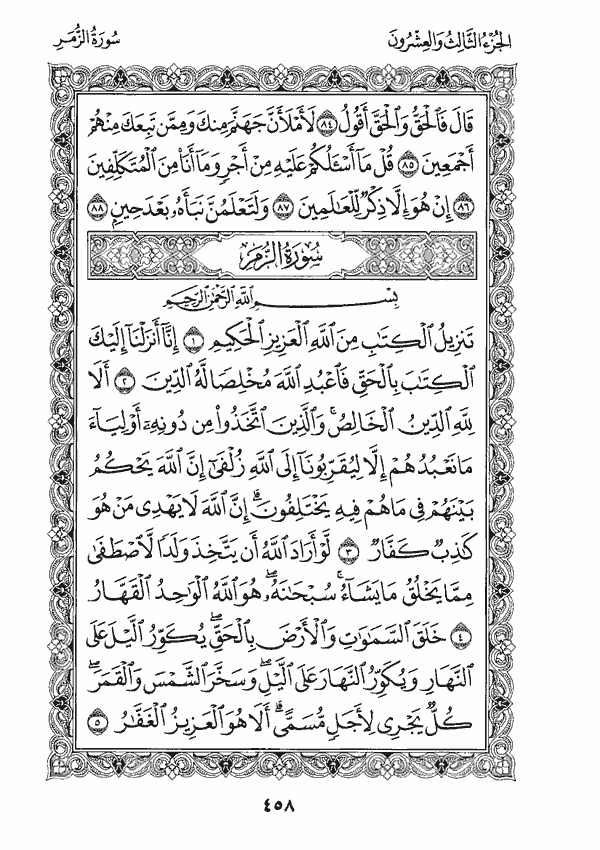 الجُزْءُ الثَّالِثُ وَالعِشْرُونَ سُورَةُ الزُّمَرِ
قَالَ فَٱلْحَقُّ وَٱلْحَقَّ أَقُولُ ٨٤ لَأَمْلَأَنَّ جَهَنَّمَ مِنكَ وَمِمَّن تَبِعَكَ مِنْهُمْ
أَجْمَعِينَ ٨٥ قُلْ مَآ أَسْـَٔلُكُمْ عَلَيْهِ مِنْ أَجْرٍ وَمَآ أَنَا۠ مِنَ ٱلْمُتَكَلِّفِينَ
٨٦ إِنْ هُوَ إِلَّا ذِكْرٌ لِّلْعَٰلَمِينَ ٨٧ وَلَتَعْلَمُنَّ نَبَأَهُۥ بَعْدَ حِينٍۭ ٨٨
سُورَةُ الزُّمَرِ
بِسْمِ ٱللَّهِ ٱلرَّحْمَٰنِ ٱلرَّحِيمِ
تَنزِيلُ ٱلْكِتَٰبِ مِنَ ٱللَّهِ ٱلْعَزِيزِ ٱلْحَكِيمِ ١ إِنَّآ أَنزَلْنَآ إِلَيْكَ
ٱلْكِتَٰبَ بِٱلْحَقِّ فَٱعْبُدِ ٱللَّهَ مُخْلِصًا لَّهُ ٱلدِّينَ ٢ أَلَا
لِلَّهِ ٱلدِّينُ ٱلْخَالِصُ ۚ وَٱلَّذِينَ ٱتَّخَذُوا۟ مِن دُونِهِۦٓ أَوْلِيَآءَ
مَا نَعْبُدُهُمْ إِلَّا لِيُقَرِّبُونَآ إِلَى ٱللَّهِ زُلْفَىٰٓ إِنَّ ٱللَّهَ يَحْكُمُ
بَيْنَهُمْ فِى مَا هُمْ فِيهِ يَخْتَلِفُونَ ۗ إِنَّ ٱللَّهَ لَا يَهْدِى مَنْ هُوَ
كَٰذِبٌ كَفَّارٌ ٣ لَّوْ أَرَادَ ٱللَّهُ أَن يَتَّخِذَ وَلَدًا لَّٱصْطَفَىٰ
مِمَّا يَخْلُقُ مَا يَشَآءُ ۚ سُبْحَٰنَهُۥ ۖ هُوَ ٱللَّهُ ٱلْوَٰحِدُ ٱلْقَهَّارُ
٤ خَلَقَ ٱلسَّمَٰوَٰتِ وَٱلْأَرْضَ بِٱلْحَقِّ ۖ يُكَوِّرُ ٱلَّيْلَ عَلَى
ٱلنَّهَارِ وَيُكَوِّرُ ٱلنَّهَارَ عَلَى ٱلَّيْلِ ۖ وَسَخَّرَ ٱلشَّمْسَ وَٱلْقَمَرَ ۖ
كُلٌّ يَجْرِى لِأَجَلٍ مُّسَمًّى ۗ أَلَا هُوَ ٱلْعَزِيزُ ٱلْغَفَّٰرُ ٥
٤٥٨